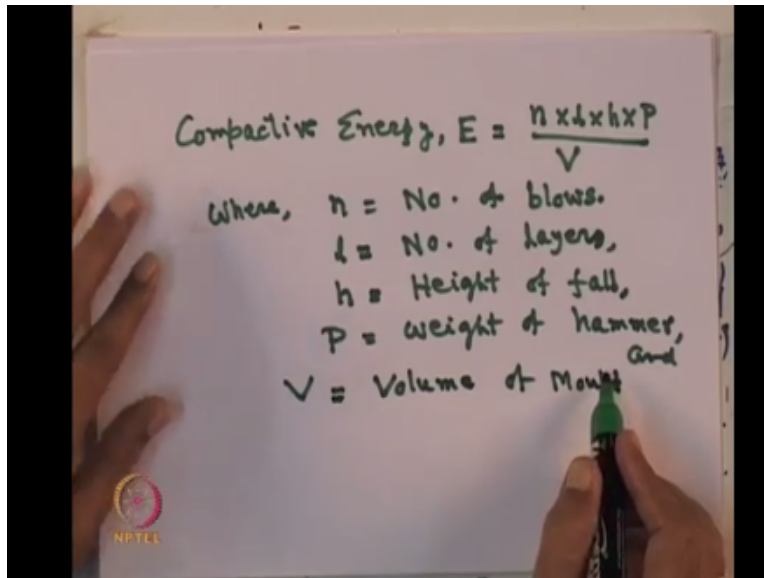 Compactive Energy, E = n x l x h x P / V
Where, n = No. of blows.
l = No. of layers,
h = Height of fall,
P = weight of hammer,
and
V = Volume of Mould
NPTEL